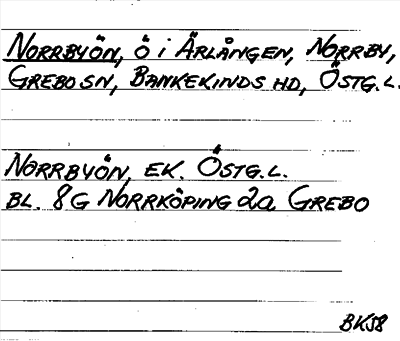 NORRBYÖN, Ö I ÄRLÅNGEN, NORRBY,
GREBO SN, BANKEKINDS HD, ÖSTG.L.
NORRBYÖN, EK. ÖSTG.L.
BL. 8G NORRKÖPING 2a GREBO
BK58